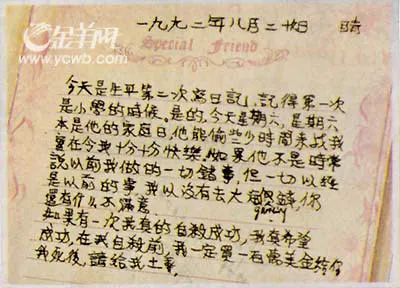 金羊网
www.ycwb.com
一九九二年八月二十日 晴
Special Friend
今天是生平第二次寫日記，記得第一次
是小學的時候。是的，今天是期六，星期六
本是他的家庭日，他能偷些少時間來找我
實在令我十分十分快樂，如果他不是時常
說以前我做的一切錯事，但一切以經
是以前的事，我以沒有去大錢，你
還有什么不滿意
如果有一次我真的自殺成功，我真希望
成功，在我自殺前，我一定買一百萬美金給你
我死後，請給我土葬。